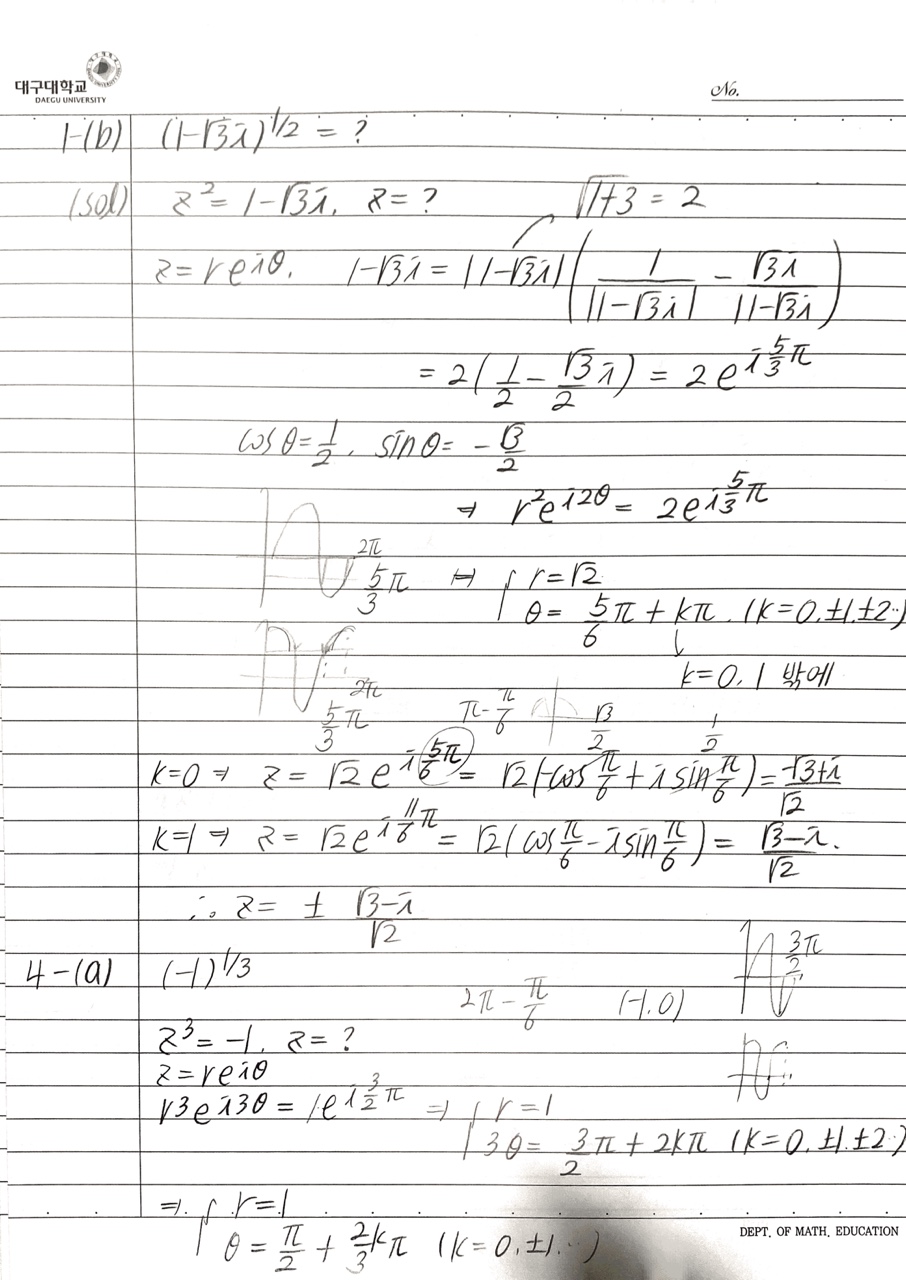 대구대학교
DAEGU UNIVERSITY
No.
1-(b) (1-√3i)^1/2 = ?
(sol) z² = 1-√3i. z = ?
√1+3 = 2
z = re^iθ. 1-√3i = |1-√3i| ( 1/|1-√3i| - √3i/|1-√3i| )
= 2( 1/2 - √3/2 i ) = 2e^i5/3π
cosθ = 1/2 . sinθ = -√3/2
⇒ r²e^i2θ = 2e^i5/3π
2π
5/3π ⇒ { r = √2
θ = 5/6π + kπ. (k=0.±1.±2..)
k=0.1 밖에
2π
5/3π
π-π/6 √3/2 1/2
k=0 ⇒ z = √2e^i5/6π = √2(-cosπ/6 + i sinπ/6) = -√3+i/√2
k=1 ⇒ z = √2e^i11/6π = √2(cosπ/6 - i sinπ/6) = √3-i/√2.
∴ z = ± √3-i/√2
3/2π
4-(a) (-1)^1/3
2π-π/6 (-1.0)
z³ = -1. z = ?
z = re^iθ
r³e^i3θ = 1e^i3/2π ⇒ { r = 1
3θ = 3/2π + 2kπ (k=0.±1.±2..)
⇒ { r = 1
θ = π/2 + 2/3kπ (k=0.±1...)
DEPT. OF MATH. EDUCATION